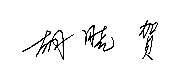 胡晓贺